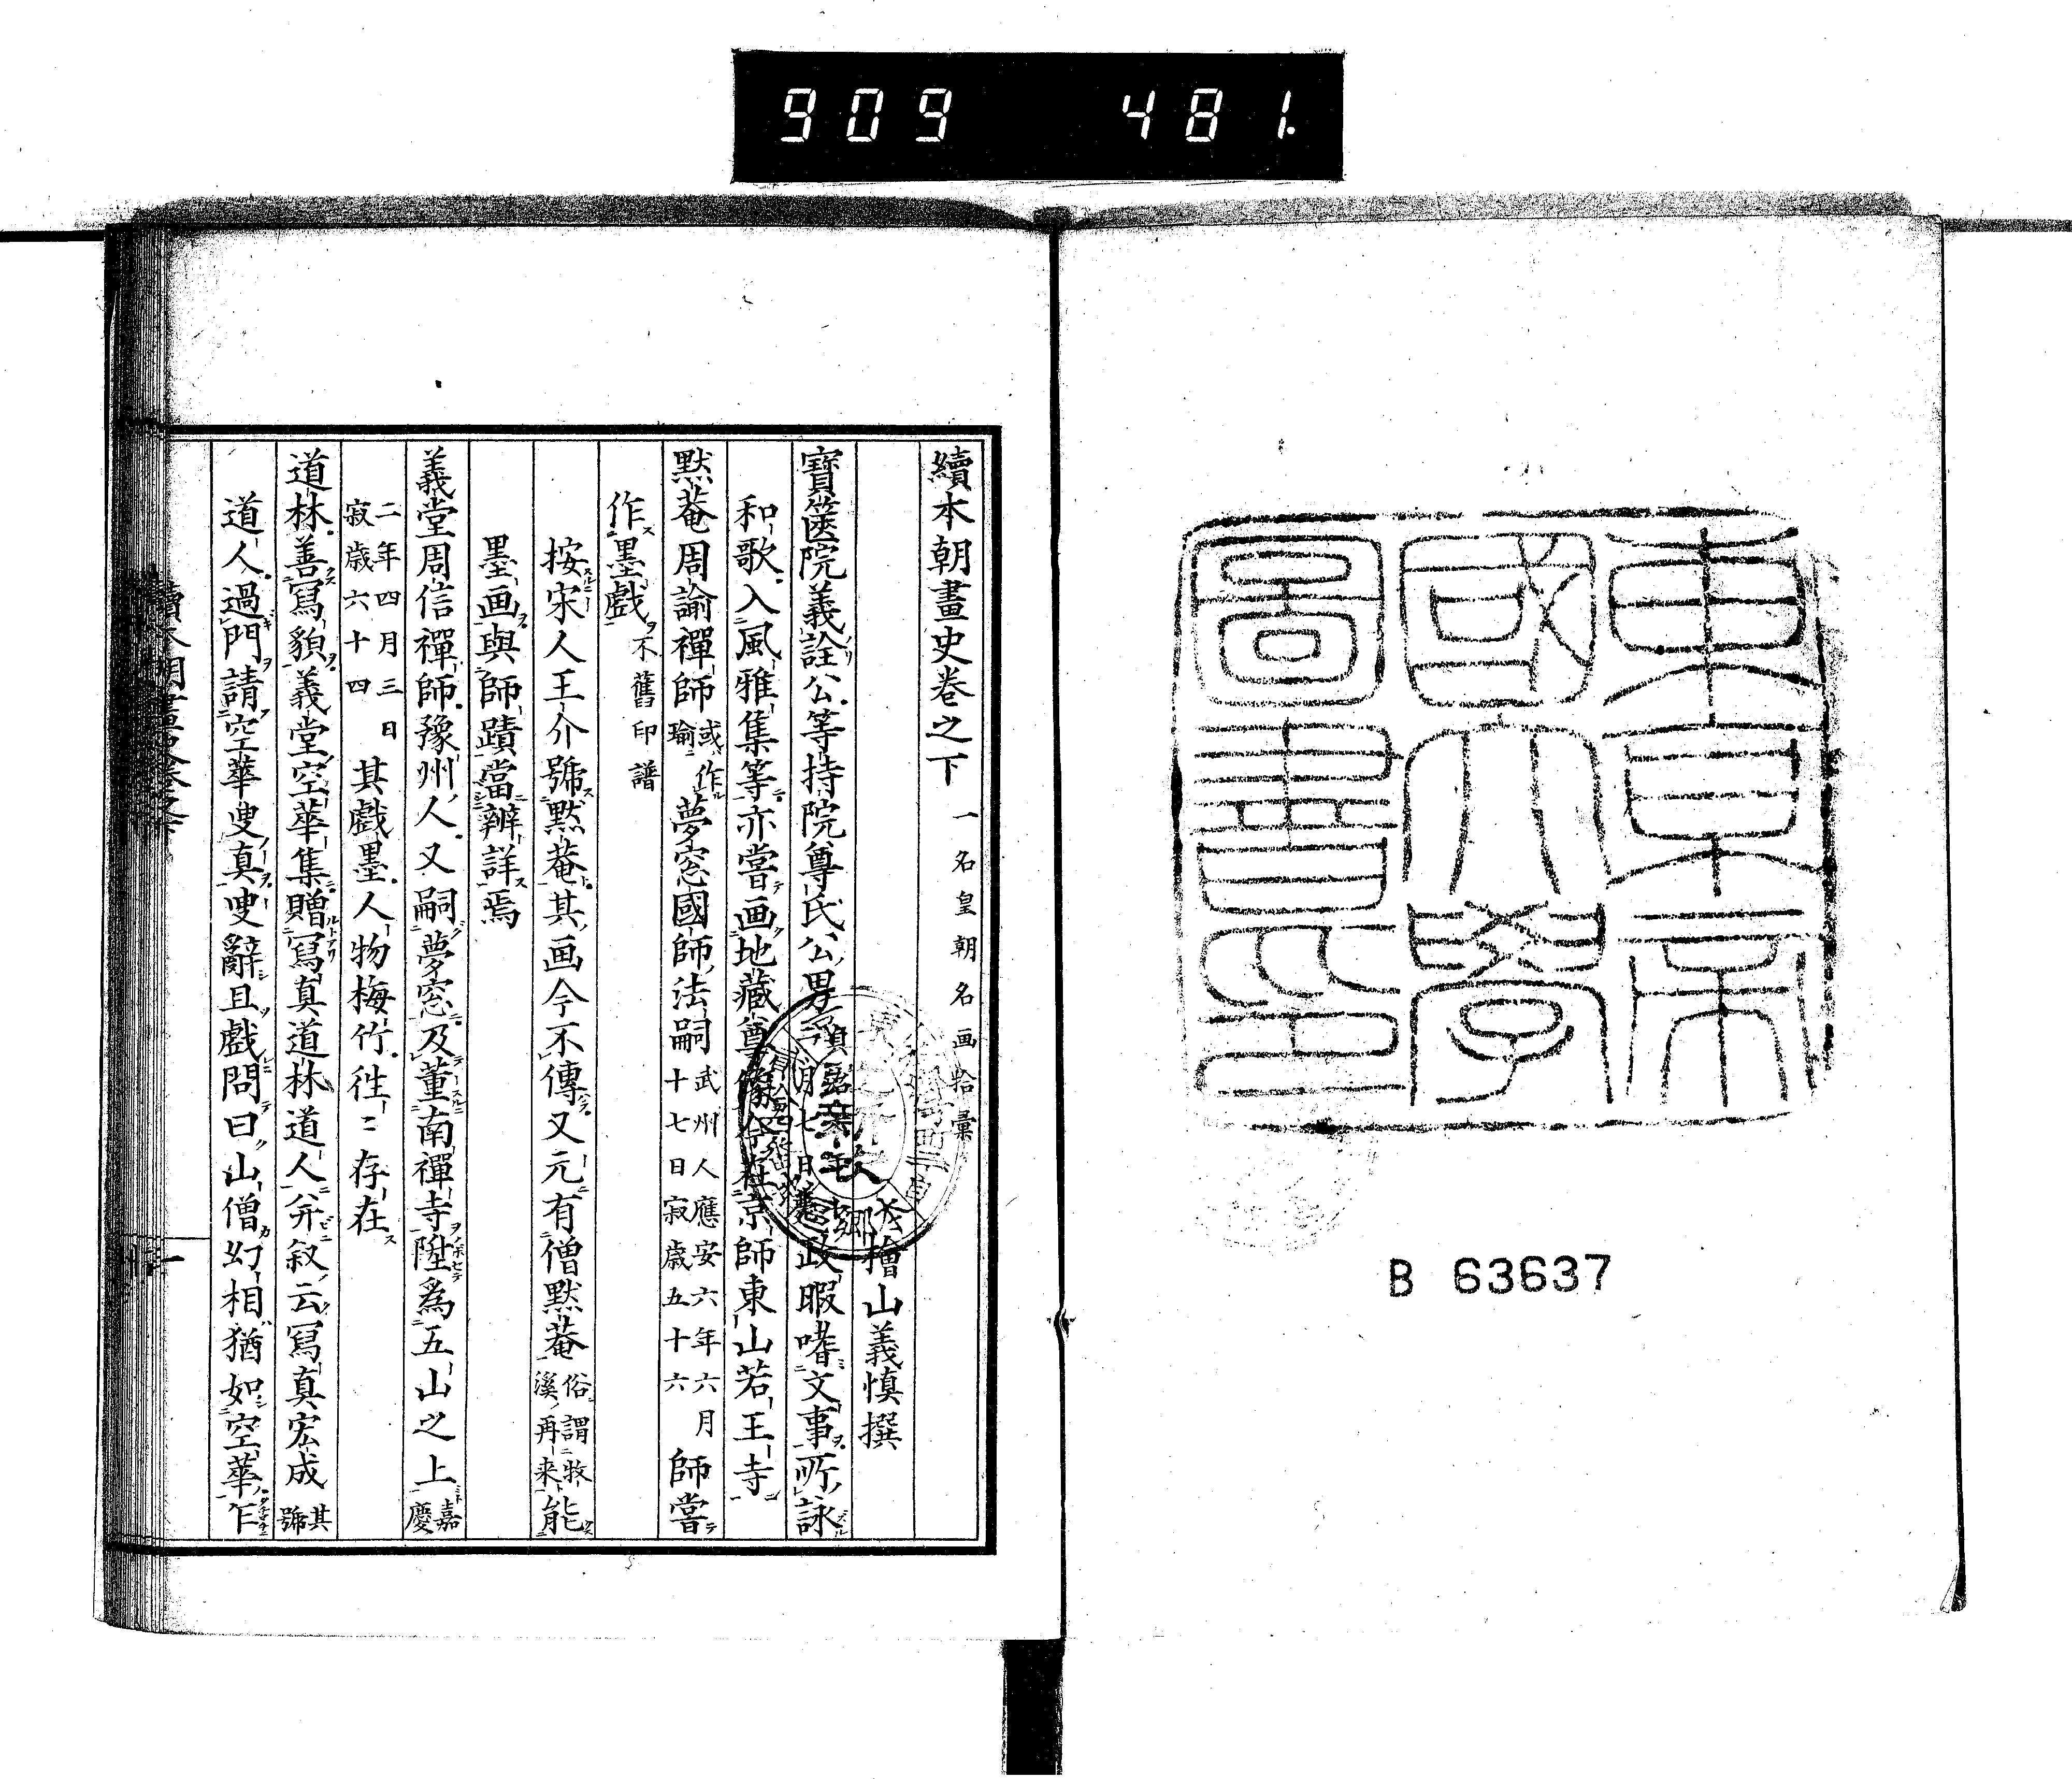 909 481.
東京帝
國大學
圖書印
B 63637
續本朝畫史卷之下 一名皇朝名画拾彙
檜山義慎撰
寶篋院義詮公等持院尊氏公男 政暇嗜文事所詠
和歌入風雅集等亦嘗画地藏尊像今在京師東山若王寺
黙菴周諭禪師或作瑜夢窓國師法嗣武州人應安六年六月十七日寂歳五十六師嘗
作墨戯不舊印譜
按宋人王介號黙菴其画今不傳又元有僧黙菴俗謂牧溪再来能
墨画與師蹟當辨詳焉
義堂周信禪師豫州人又嗣夢窓及董南禪寺陞為五山之上嘉慶
二年四月三日寂歳六十四其戯墨人物梅竹徃〻存在
道林善寫貌義堂空華集贈寫真道林道人并叙云寫真宏成其號
道人過門請空華叟真叟辭且戯問曰山僧幻相猶如空華乍
續本朝畫史卷之下 一